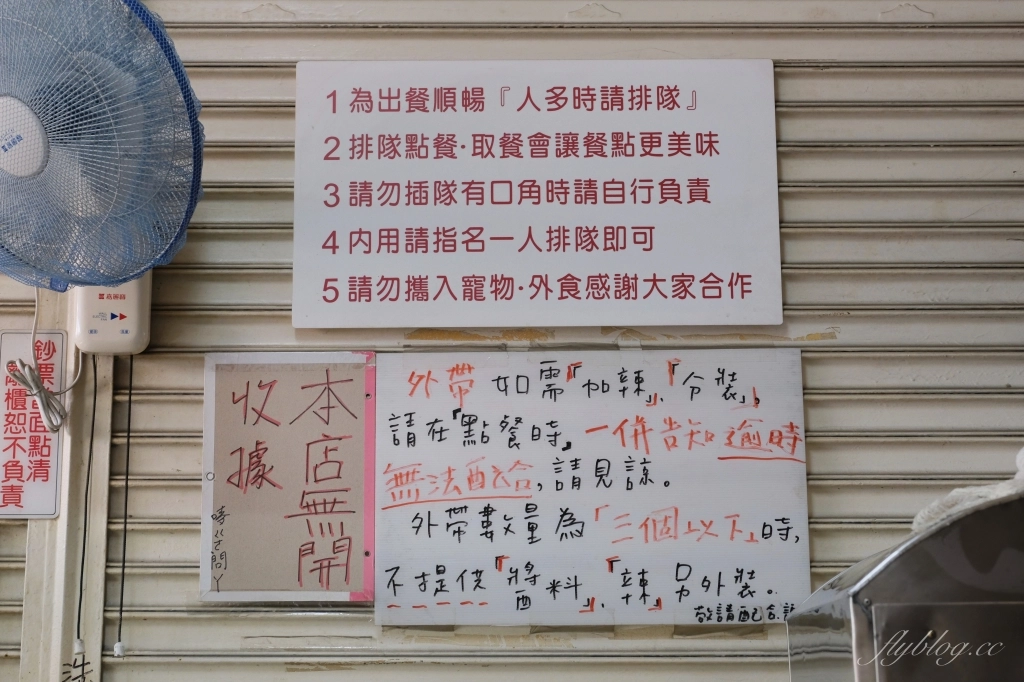 1為出餐順暢『人多時請排隊』
2排隊點餐·取餐會讓餐點更美味
3請勿插隊有口角時請自行負責
4內用請指名一人排隊即可
5請勿攜入寵物·外食感謝大家合作
鈔票
面點清
離櫃恕不負責
本店無開
收據
外帶如需「加辣」、「分裝」,
請在「點餐時」一併告知逾時
無法配合,請見諒。
外帶數量為「三個以下」時,
不提供「醬料」、「辣」另外裝。
敬請配合.
洗
flyblog.cc